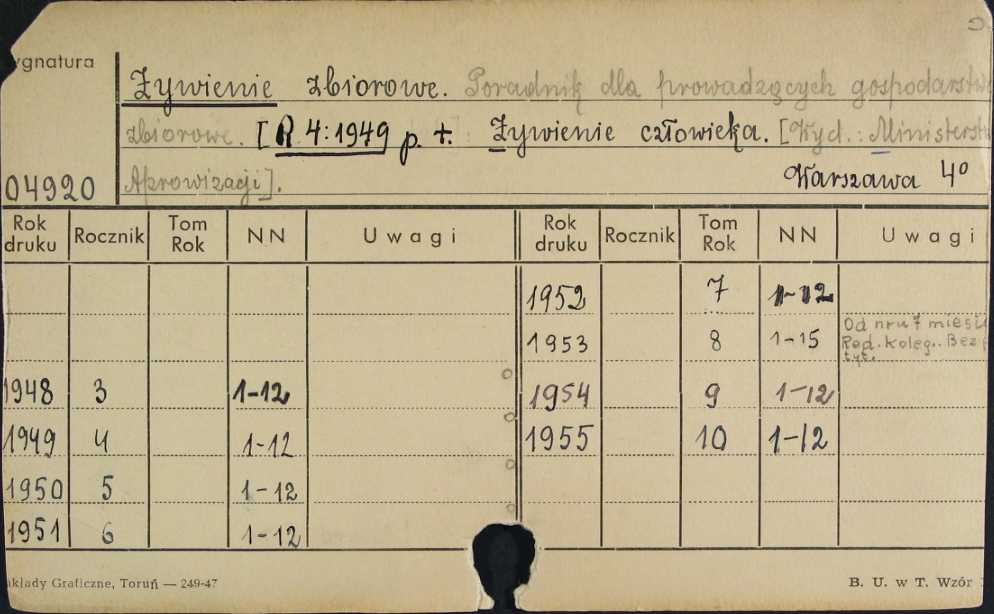 ygnatura
Żywienie zbiorowe. Poradnik dla prowadzących gospodarstwa
zbiorowe. [R. 4:1949 p. t. Żywienie człowieka. [Wyd.: Ministerstw
04920 Aprowizacji]. Warszawa 4º
Rok druku Rocznik Tom Rok NN Uwagi Rok druku Rocznik Tom Rok NN Uwagi
1952 7 1-12
1953 8 1-15 Od nru 7 miesi
Red. Koleg.. Bez
tyt.
1948 3 1-12 1954 9 1-12
1949 4 1-12 1955 10 1-12
1950 5 1-12
1951 6 1-12
akłady Graficzne, Toruń — 249-47 B. U. w T. Wzór